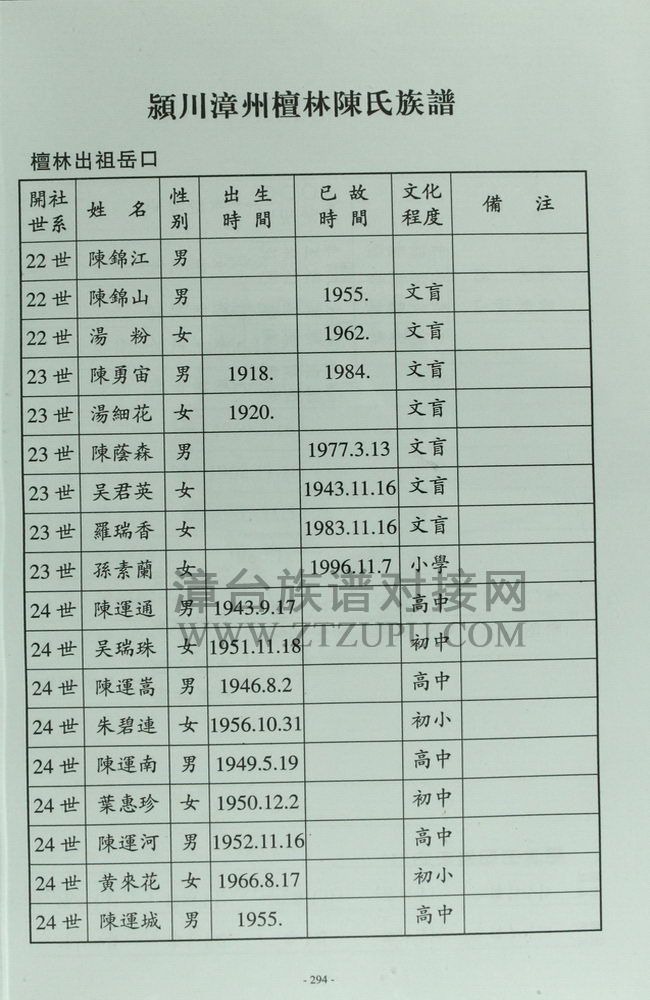 潁川漳州檀林陳氏族譜
檀林出祖岳口
開社世系 姓 名 性别 出生時間 已故時間 文化程度 備 注
22世 陳錦江 男
22世 陳錦山 男 1955. 文盲
22世 湯 粉 女 1962. 文盲
23世 陳勇宙 男 1918. 1984. 文盲
23世 湯細花 女 1920. 文盲
23世 陳蔭森 男 1977.3.13 文盲
23世 吴君英 女 1943.11.16 文盲
23世 羅瑞香 女 1983.11.16 文盲
23世 孫素蘭 女 1996.11.7 小學
24世 陳運通 男 1943.9.17 高中
24世 吴瑞珠 女 1951.11.18 初中
24世 陳運嵩 男 1946.8.2 高中
24世 朱碧連 女 1956.10.31 初小
24世 陳運南 男 1949.5.19 高中
24世 葉惠珍 女 1950.12.2 初中
24世 陳運河 男 1952.11.16 高中
24世 黄來花 女 1966.8.17 初小
24世 陳運城 男 1955. 高中
漳台族谱对接网
WWW.ZTZUPU.COM
- 294 -